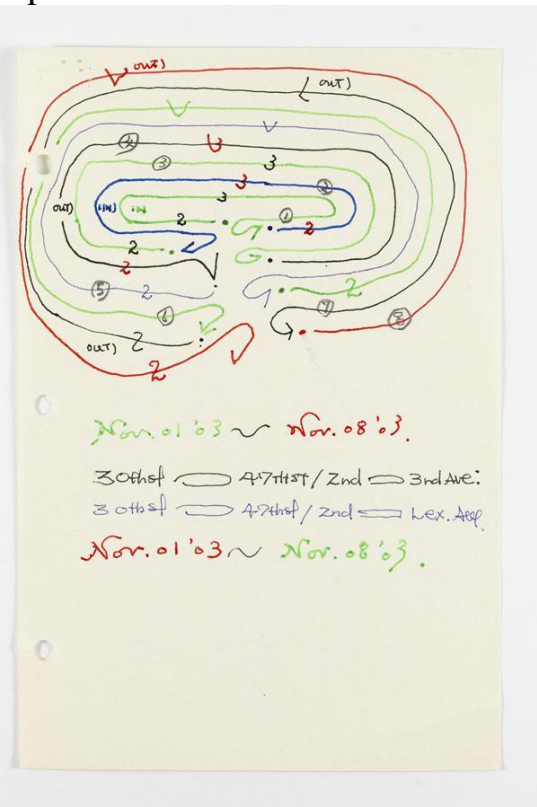 OUT)
OUT)
④ 3
③ 3
3 ②
OUT) (IN) IN 3
2 ① 2
2
2
⑤ 2 2
⑥ ⑦ ⑧
OUT) 2
2
Nov. 01 '03 ~ Nov. 08 '03.
30thst 47THST / 2nd 3ndAve:
30thst 47thst / 2nd Lex. Ave.
Nov. 01 '03 ~ Nov. 08 '03.